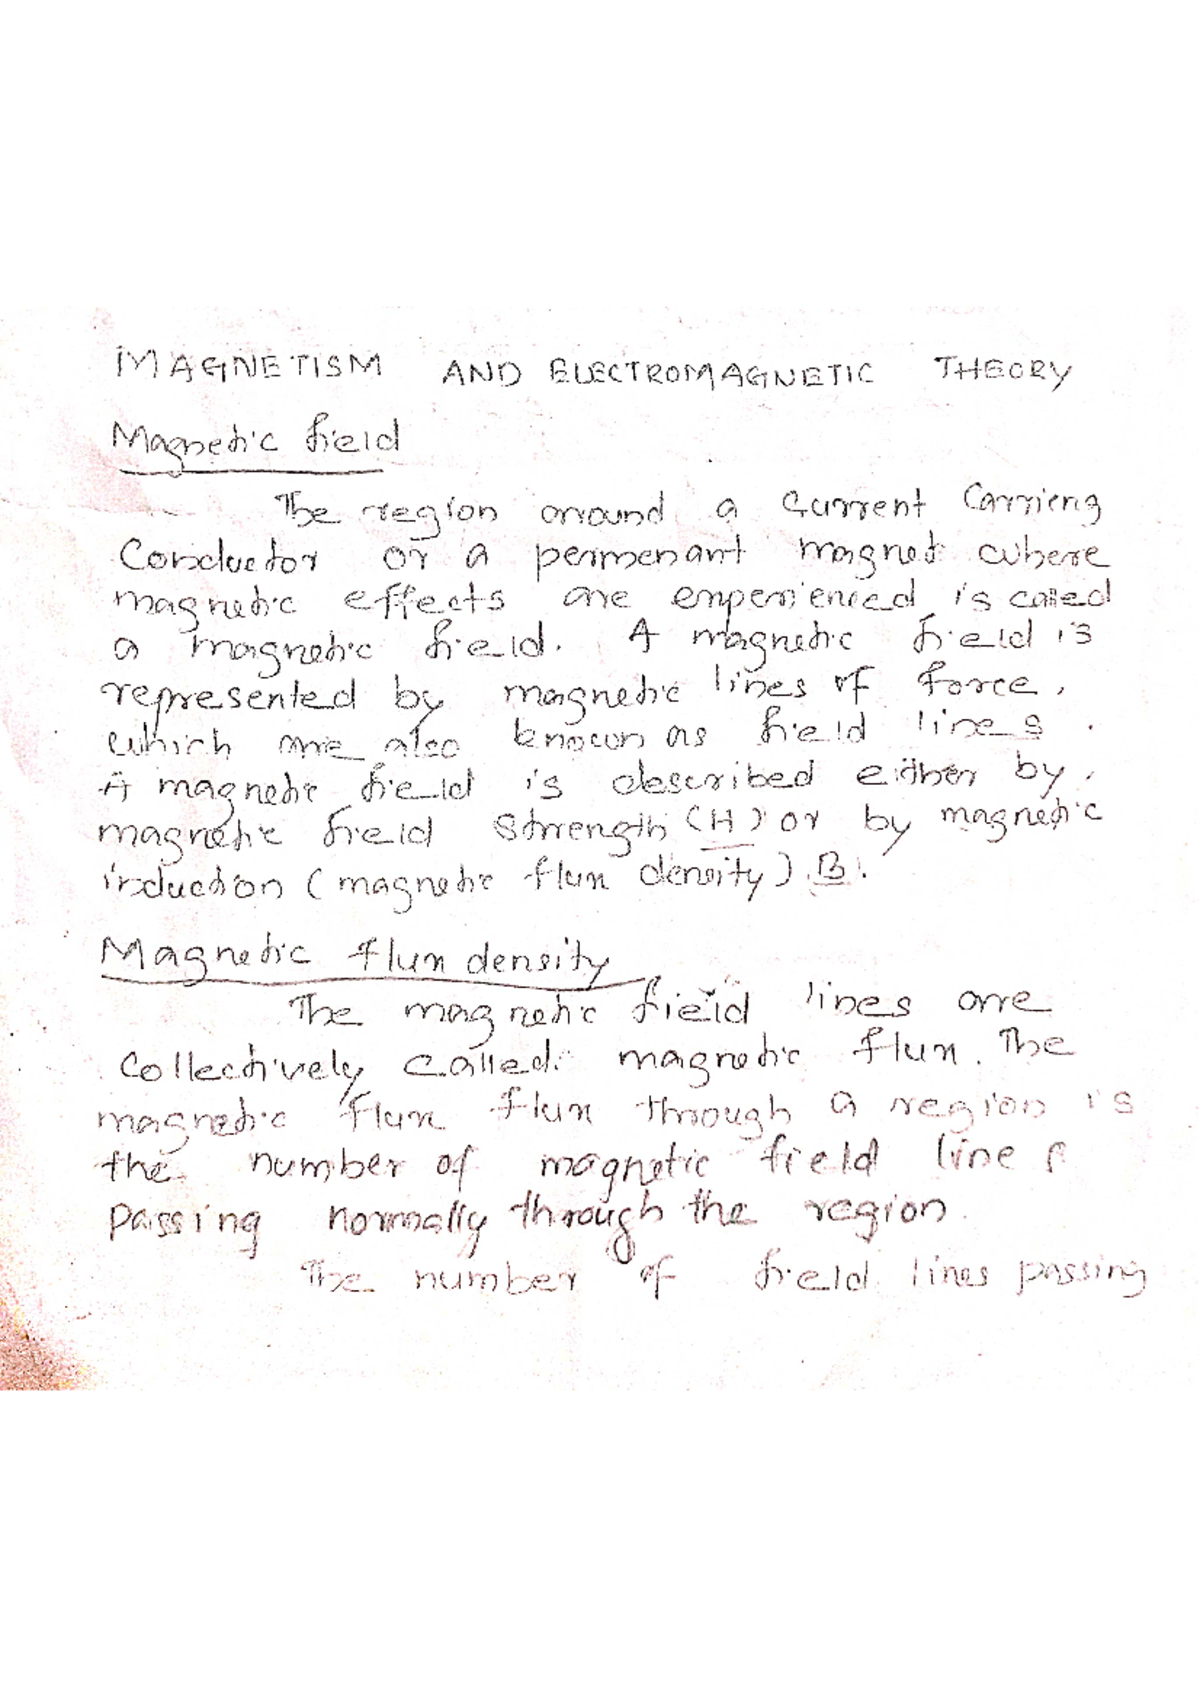 MAGNETISM AND ELECTROMAGNETIC THEORY
Magnetic field
The region around a Current Carrieng
Conductor or a permenant magnet where
magnetic effects are experienced is called
a magnetic field. A magnetic field is
represented by magnetic lines of force,
which are also known as field lines.
A magnetic field is described either by,
magnetic field strength (H) or by magnetic
induction (magnetic flux density) B.
Magnetic flux density
The magnetic field lines are
Collectively called magnetic flux. The
magnetic flux flux through a region is
the number of magnetic field line
passing normally through the region.
The number of field lines passing